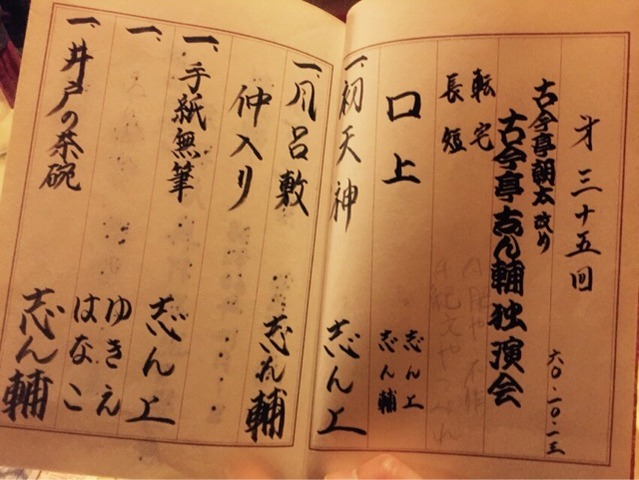 才三十五回
六〇.一〇.一三
古今亭朝太改め
古今亭志ん輔独演会
転宅
長短
口上
志ん上
志ん輔
一、初天神
志ん上
一、風呂敷
志ん輔
仲入り
一、手紙無筆
志ん上
一、
ゆきえ
はなこ
一、井戸の茶碗
志ん輔